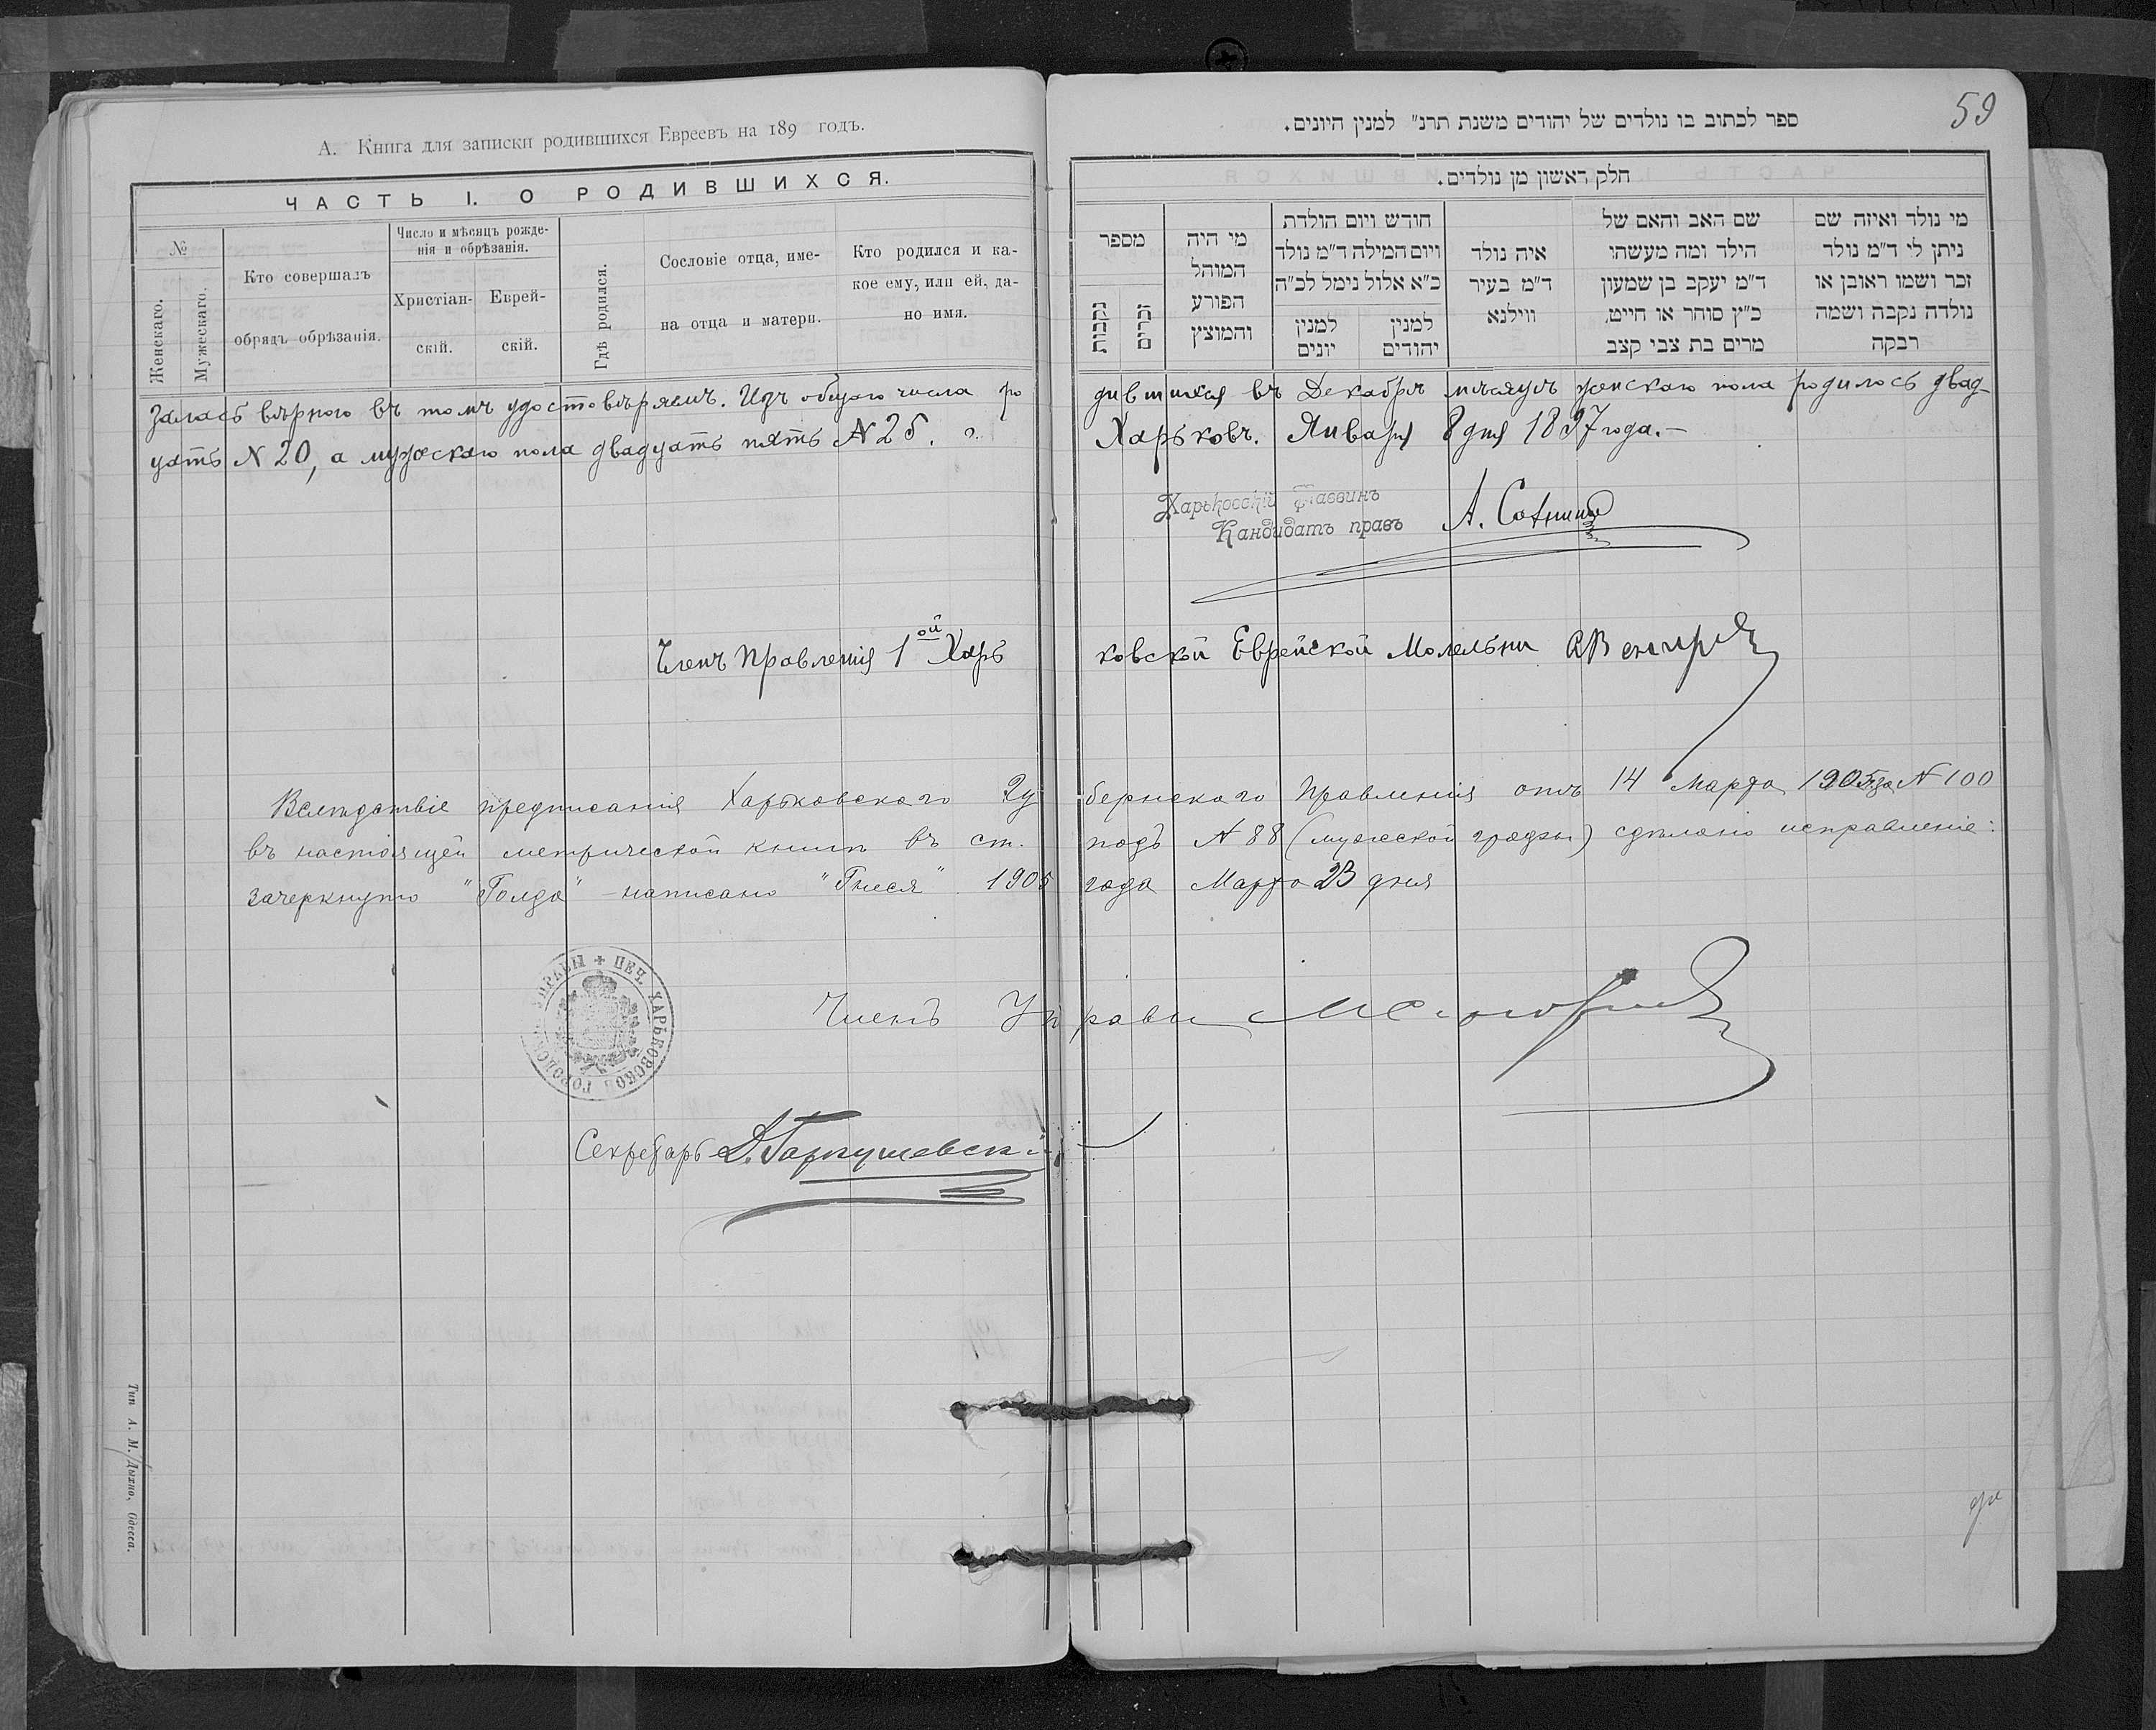 А. Книга для записки родившихся Евреевъ на 189 годъ.
ЧАСТЬ I. О РОДИВШИХСЯ.
№
Женскаго.
Мужескаго.
Кто совершалъ
обрядъ обрѣзанія.
Число и мѣсяцъ рожде-
нія и обрѣзанія.
Христіан-
скій.
Еврей-
скій.
Гдѣ родился.
Сословіе отца, име-
на отца и матери.
Кто родился и ка-
кое ему, или ей, да-
но имя.
59
ספר לכתוב בו נולדים של יהודים משנת תרנ״ למנין היונים.
חלק ראשון מן נולדים.
מספר
נקבות
זכרים
מי היה
המוהל
הפורע
והמוצץ
חודש ויום הולדת
ויום המילה ד״מ נולד
כ״א אלול נימל לכ״ה
למנין
יונים
למנין
יהודים
איה נולד
ד״מ בעיר
ווילנא
שם האב והאם של
הילד ומה מעשהו
ד״מ יעקב בן שמעון
כ״ץ סוחר או חייט,
מרים בת צבי קצב
מי נולד ואיזה שם
ניתן לו ד״מ נולד
זכר ושמו ראובן או
נולדה נקבה ושמה
רבקה
залась вѣрною въ томъ удостовѣряемъ. Изъ общаго числа родившихся въ Декабрѣ мѣсяцѣ женскаго пола родилось двад-
цать N 20, а мужескаго пола двадцать пять N 25. г. Харьковъ. Января 8 дня 1897 года.-
Харьковскій Раввинъ
Кандидатъ правъ А.
Членъ Правленія 1ой Харьковской Еврейской Молельни
Вслѣдствіе предписанія Харьковскаго Губернскаго Правленія отъ 14 Марта 1905 за N 100
въ настоящей метрической книгѣ въ ст. подъ N 88 (мужеской графы) сдѣлано исправленіе:
зачеркнуто "Голда" - написано "Гнеся". 1905 года Марта 23 дня
ПЕЧ. ХАРЬКОВСКОЙ ГОРОДСКОЙ УПРАВЫ
Членъ Управы
Секретарь
Тип А. М. Дыхно, Одесса.